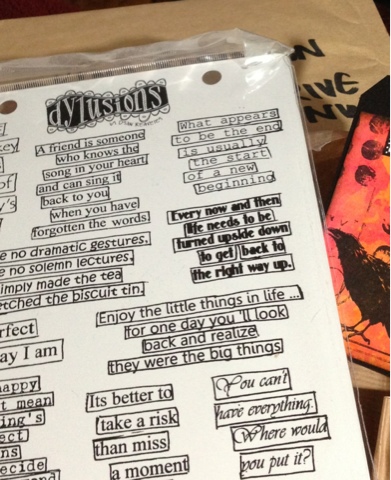 dylusions
A friend is someone
who knows the
song in your heart
and can sing it
back to you
when you have
forgotten the words.
What appears
to be the end
is usually
the start
of a new
beginning
Every now and then
life needs to be
turned upside down
to get back to
the right way up.
e no dramatic gestures,
e no solemn lectures,
imply made the tea
etched the biscuit tin.
Enjoy the little things in life ...
for one day you 'll look
back and realize
they were the big things
erfect
ay I am
Its better to
take a risk
than miss
a moment
You can't
have everything.
Where would
you put it?
happy
t mean
ing's
ect
ns
decide